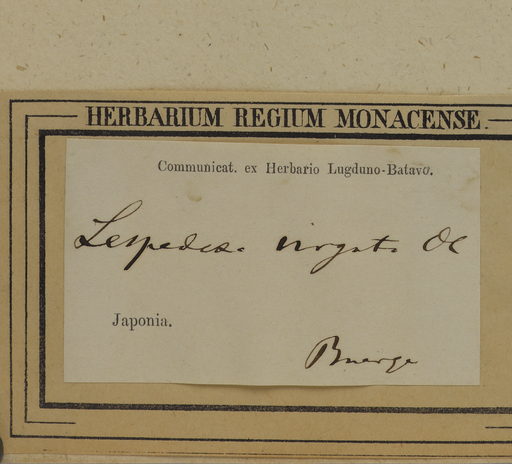 HERBARIUM REGIUM MONACENSE.
Communicat. ex Herbario Lugduno-Batavo.
Lespedeza virgata DC
Japonia.
Buerge